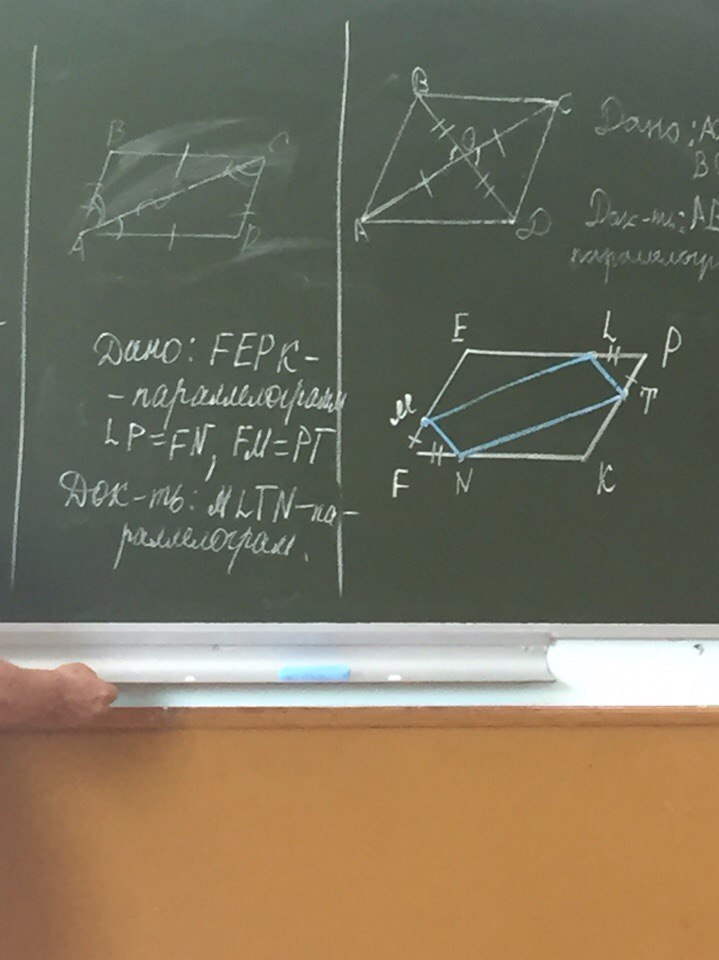 B
C
A
D
B
C
O
A
D
Дано: A
B
Док-ть: A
параллелогр
Дано: FEPK-
-параллелограмм
LP=FN, FM=PT
Док-ть: MLTN-па-
раллелограм.
E
L
P
M
T
F
N
K